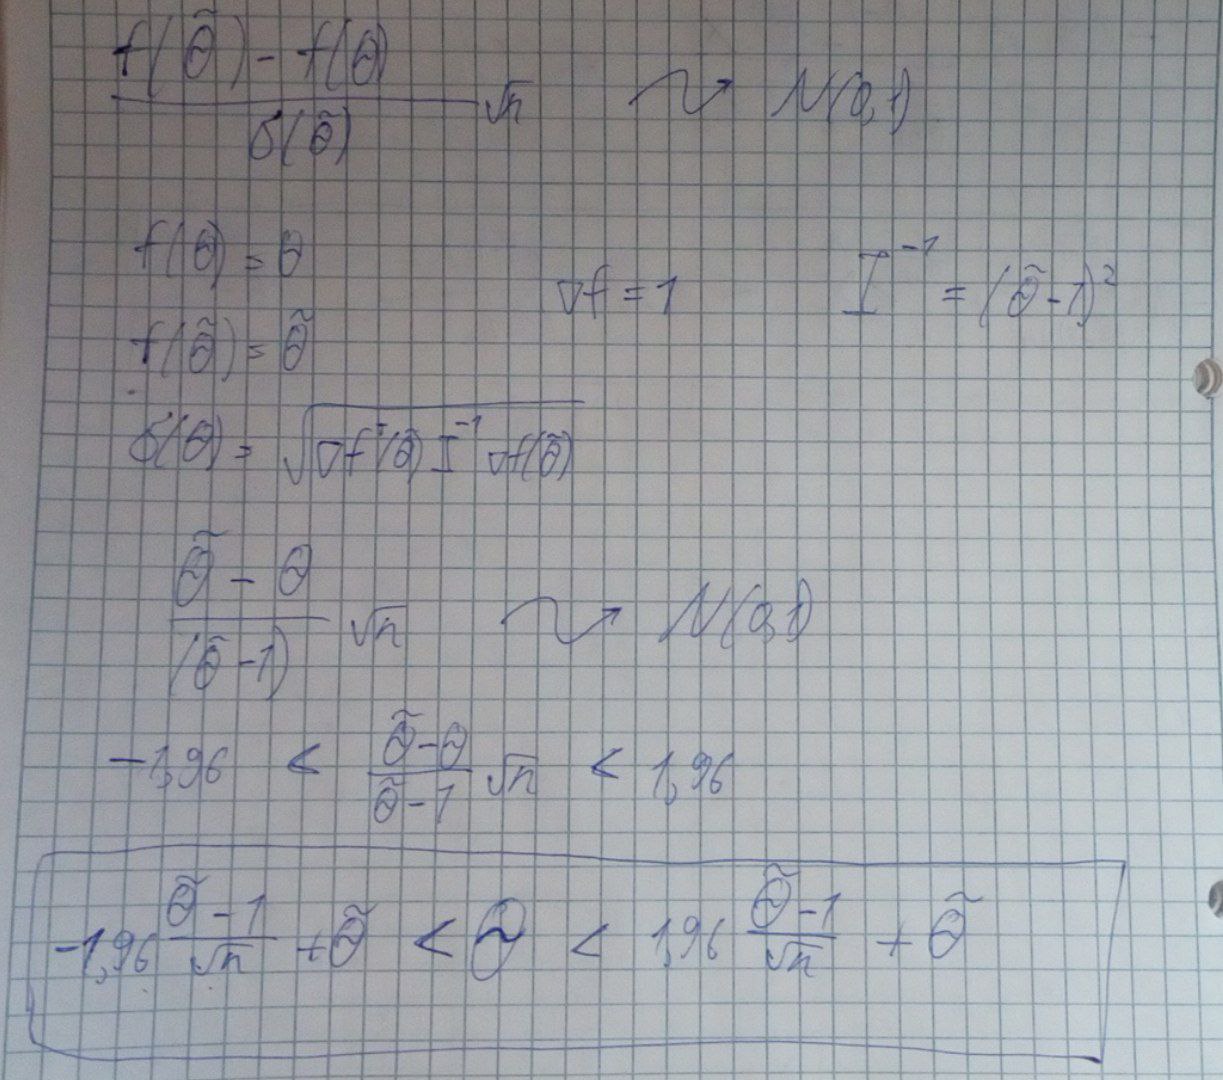 (f(θ̃) - f(θ)) / σ(θ̃) √n ⇝ N(0,1)
f(θ) = θ
∇f = 1 I⁻¹ = (θ̃-1)²
f(θ̃) = θ̃
σ(θ) = √(∇fᵀ(θ̃) I⁻¹ ∇f(θ̃))
(θ̃ - θ) / (θ̃-1) √n ⇝ N(0,1)
-1,96 < (θ̃-θ) / (θ̃-1) √n < 1,96
-1,96 (θ̃-1) / √n + θ̃ < θ < 1,96 (θ̃-1) / √n + θ̃